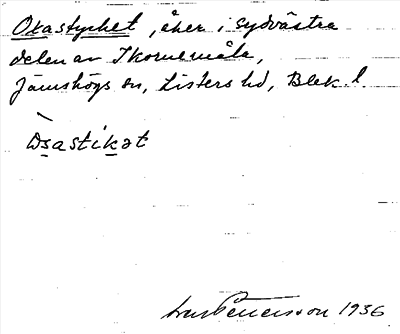 Oxastycket, åker i sydvästra
delen av Ikornemåla,
Jämshögs sn, Listers hd, Blek. l.
Ꞷsastikət
Pettersson 1936